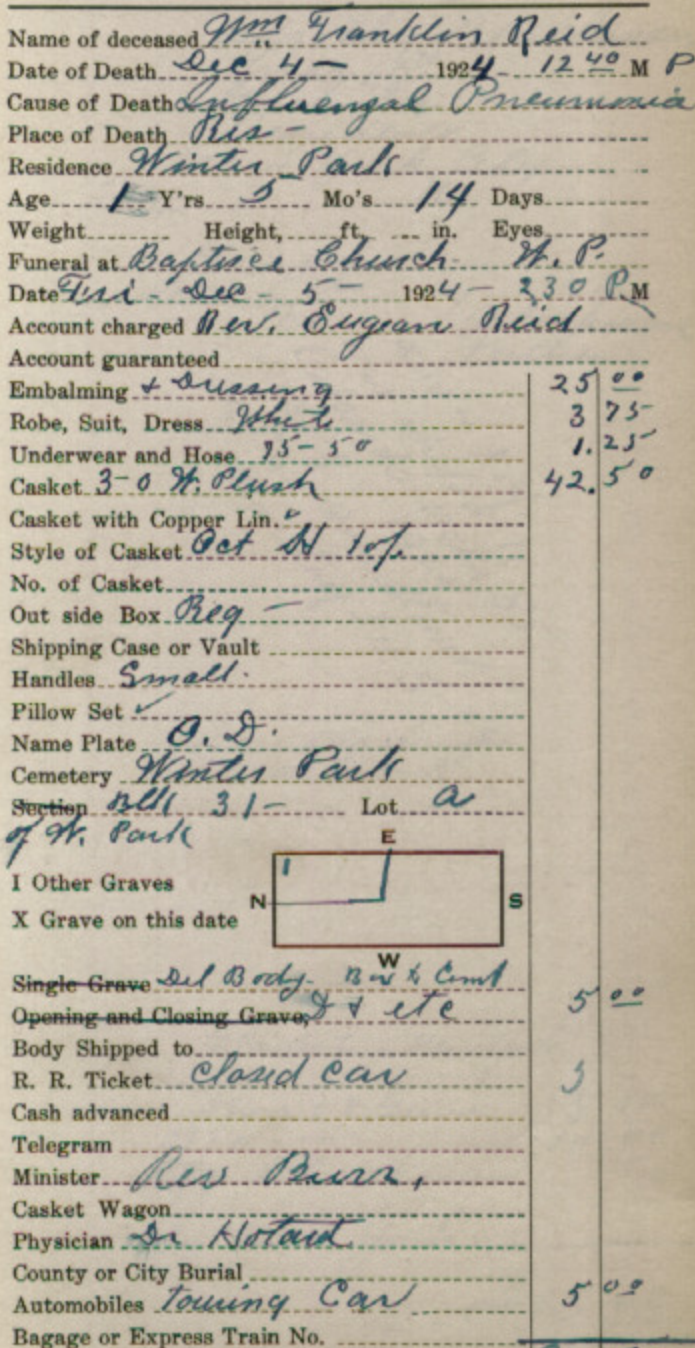 Name of deceased Wm Franklin Reid
Date of Death Dec 4 - 1924 - 12 40 M P
Cause of Death Influenzal Pneumonia
Place of Death Res -
Residence Winter Park
Age 1 Y'rs 5 Mo's 14 Days
Weight Height, ft. in. Eyes
Funeral at Baptist Church W. P.
Date Fri - Dec - 5 - 1924 - 230 P.M
Account charged Rev. Eugean Reid
Account guaranteed
Embalming & Dressing 25 00
Robe, Suit, Dress White 3 75
Underwear and Hose 75-50 1.25
Casket 3-0 W. Plush 42.50
Casket with Copper Lin.
Style of Casket Oct top
No. of Casket
Out side Box Reg -
Shipping Case or Vault
Handles Small.
Pillow Set ✓
Name Plate O. D.
Cemetery Winter Park
Section Blk 31 - Lot a
of W. Park
E
I Other Graves
N S
X Grave on this date
W
Single Grave Del Body. Box to Cemt
Opening and Closing Grave, & etc 5 00
Body Shipped to
R. R. Ticket Closed Car 5
Cash advanced
Telegram
Minister Rev
Casket Wagon
Physician Dr Hotard
County or City Burial
Automobiles Touring Car 5 00
Bagage or Express Train No.